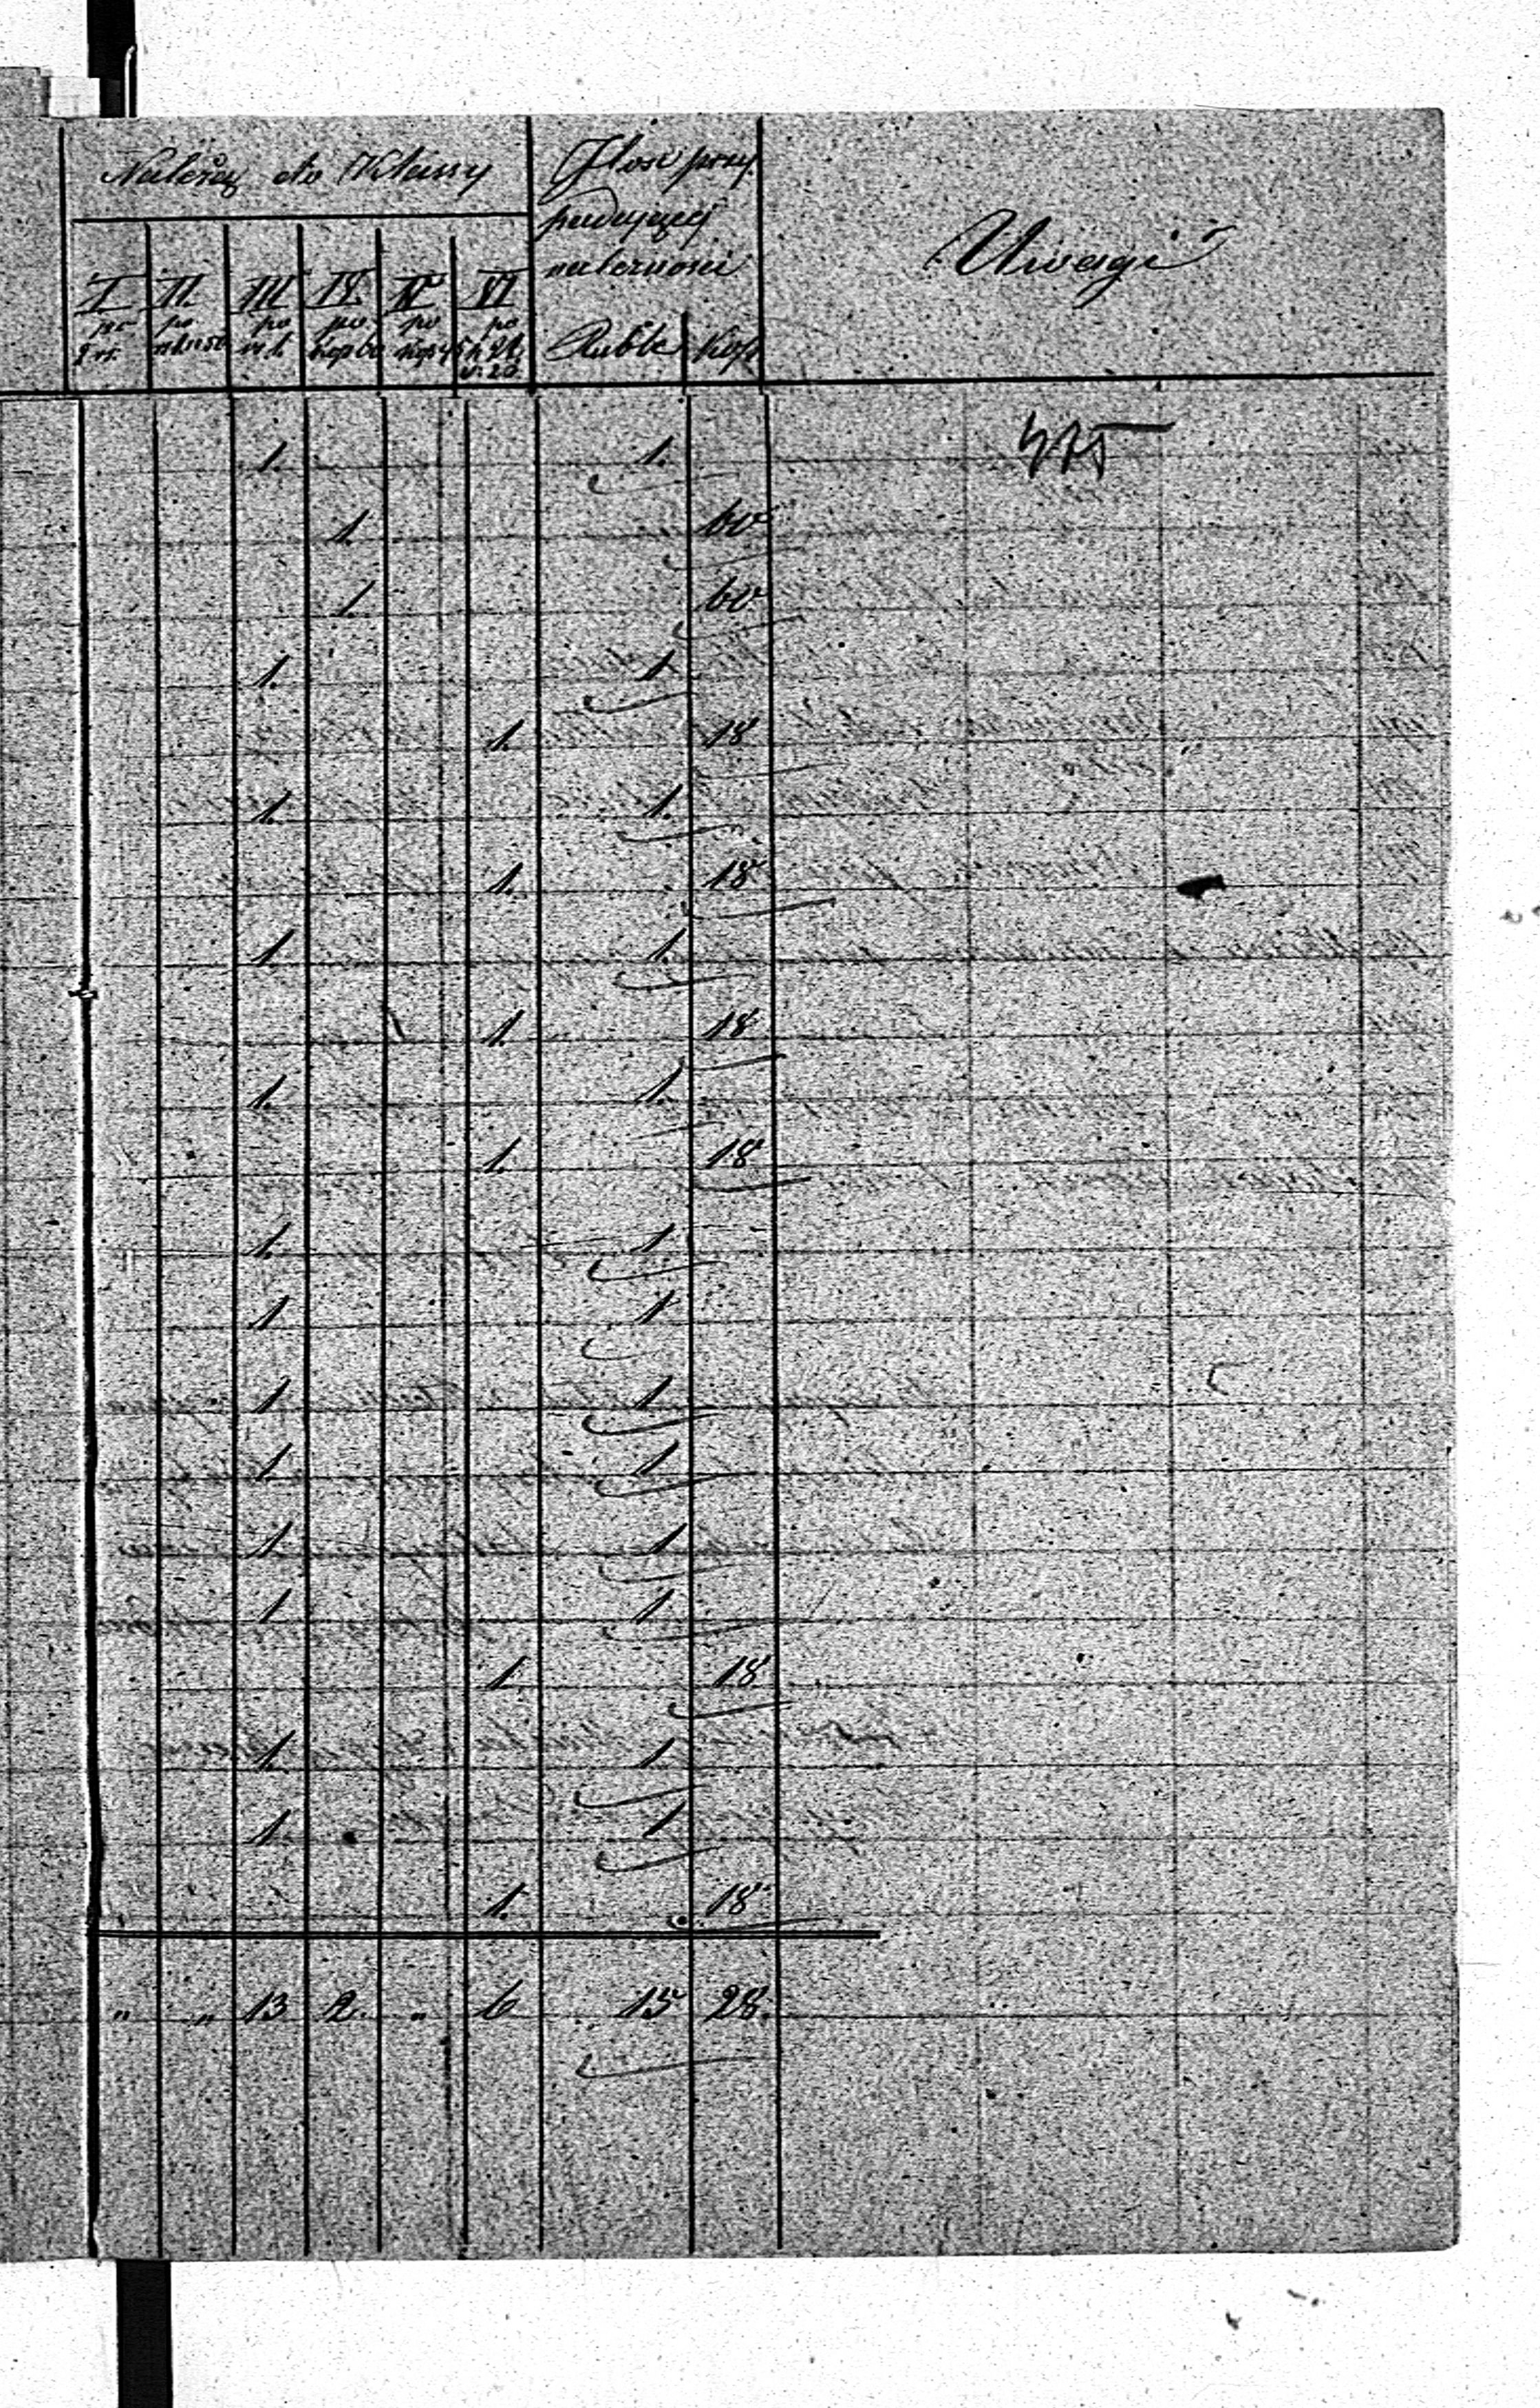 Należą do Klassy
Ilość przy-
padającej
należności
Uwagi
I. II. III IV. V VI
po po po po po po
2 rs. rs. 1 k 50 rs. 1. kop 60 kop 45
Ruble Kop
475
1. 1.
1. 60
1. 60
1. 1
1. 18
1. 1.
1. 18
1 1.
1. 18
1. 1.
1. 18
1. 1
1 1
1 1
1. 1
1. 1
1 1
1 18
1. 1
1. 1
1. 18
" " 13 2. " 6 15 28.